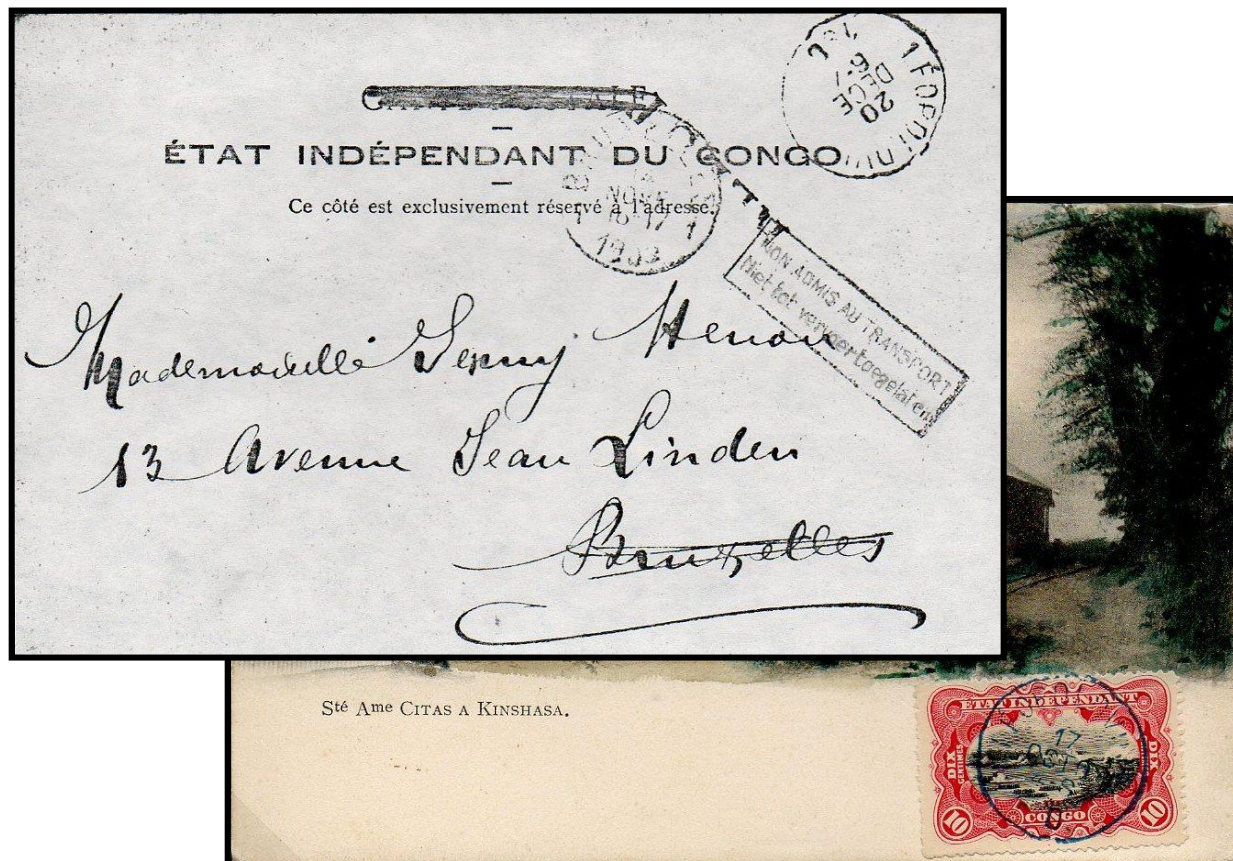 ÉTAT INDÉPENDANT DU CONGO
Ce côté est exclusivement réservé à l'adresse.
20
DECE
NOVE
NON ADMIS AU TRANSPORT
Niet tot vervoer toegelaten
Mademoiselle Jenny Henon
13 Avenue Jean Linden
Bruxelles
Sté Ame CITAS A KINSHASA.
ÉTAT INDÉPENDANT
17
OCT
DIX
CENTIMES
DIX
10
CONGO
10